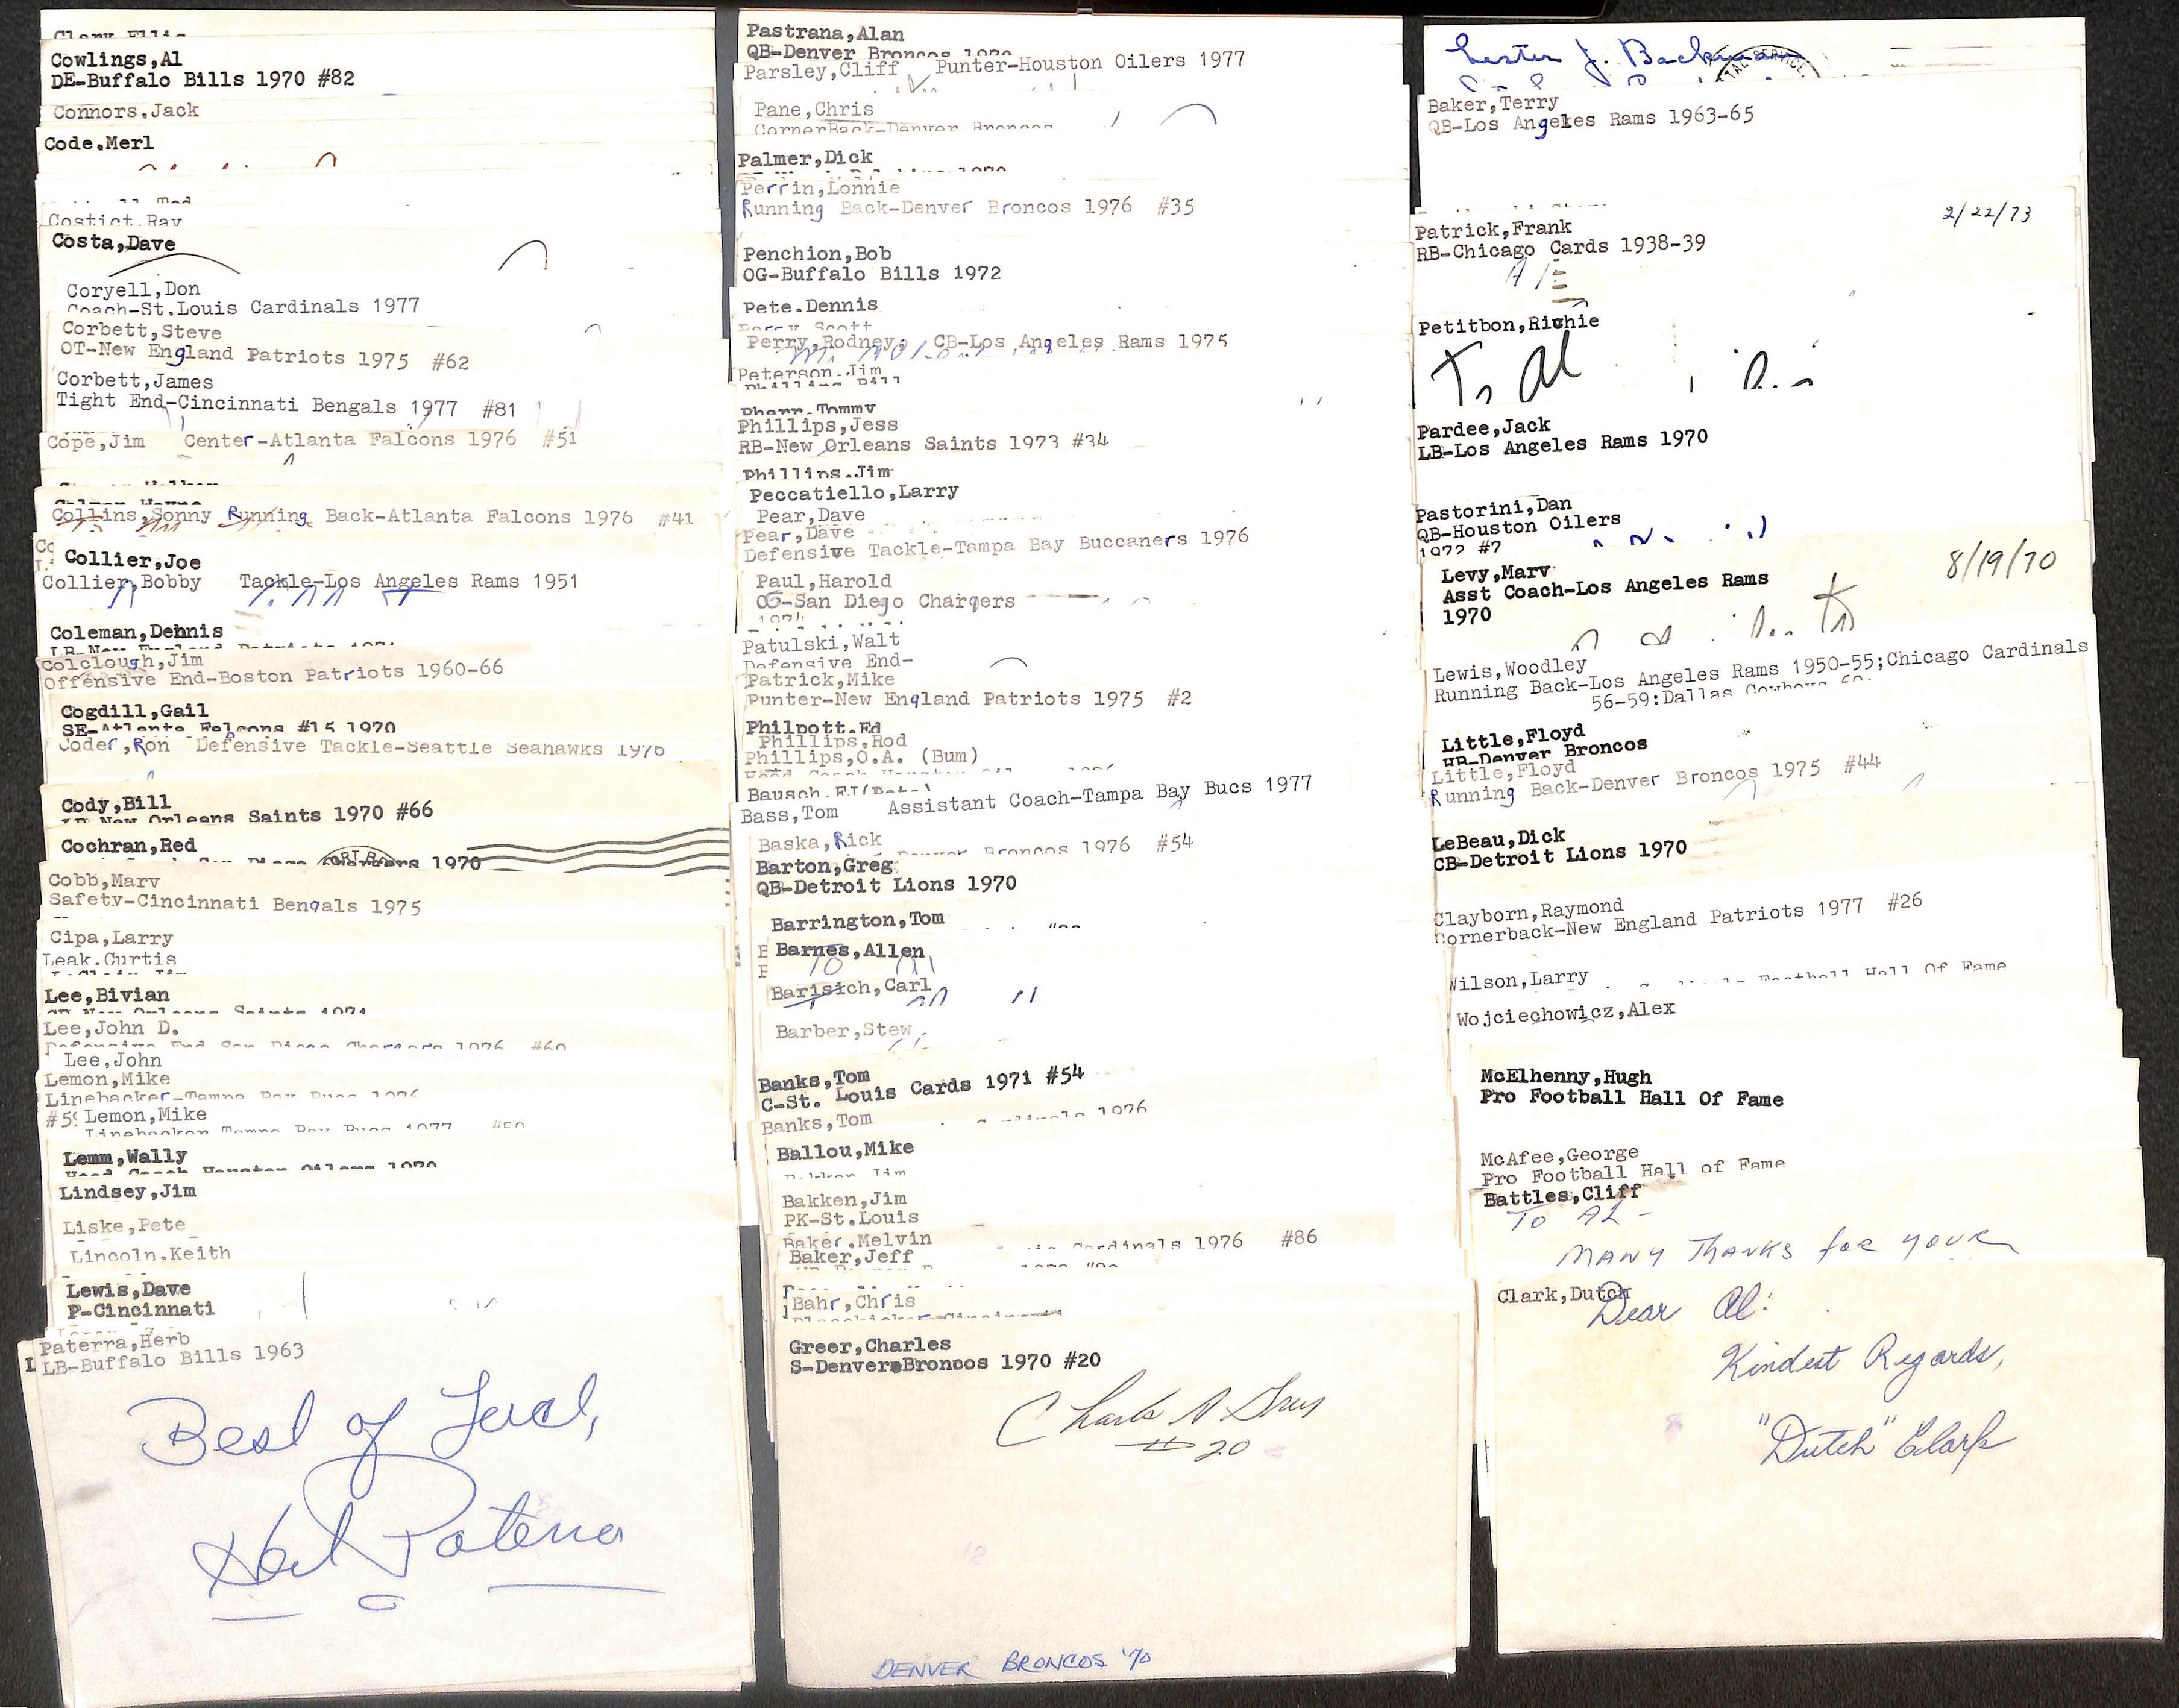 Clary, Ellis
Cowlings,Al
DE-Buffalo Bills 1970 #82
Connors.Jack
Code.Merl
Costict.Ray
Costa,Dave
Coryell,Don
Coach-St.Louis Cardinals 1977
Corbett,Steve
OT-New England Patriots 1975 #62
Corbett,James
Tight End-Cincinnati Bengals 1977 #81
Cope,Jim Center-Atlanta Falcons 1976 #51
Colman, Wayne
Collins,Sonny Running Back-Atlanta Falcons 1976 #41
Collier,Joe
Collier,Bobby Tackle-Los Angeles Rams 1951
Coleman,Dennis
LB-New England Patriots 1971
Colclough,Jim
Offensive End-Boston Patriots 1960-66
Cogdill,Gail
SE-Atlanta Falcons #15 1970
Coder,Ron Defensive Tackle-Seattle Seahawks 1976
Cody,Bill
LB New Orleans Saints 1970 #66
Cochran,Red
San Diego Chargers 1970
Cobb,Marv
Safety-Cincinnati Bengals 1975
Cipa,Larry
Leak.Curtis
Lee,Bivian
CB New Orleans Saints 1971
Lee,John D.
Defensive End San Diego Chargers 1976 #60
Lee,John
Lemon,Mike
Linebacker-Tampa Bay Bucs 1976
#59
Lemon,Mike
Linebacker Tampa Bay Bucs 1977 #50
Lemm,Wally
Head Coach Houston Oilers 1970
Lindsey,Jim
Liske,Pete
Lincoln.Keith
Lewis,Dave
P-Cincinnati
Paterra,Herb
LB-Buffalo Bills 1963
Best of Luck,
Herb Paterra
Pastrana,Alan
QB-Denver Broncos 1970
Parsley,Cliff Punter-Houston Oilers 1977
Pane,Chris
CornerBack-Denver Broncos
Palmer,Dick
Perrin,Lonnie
Running Back-Denver Broncos 1976 #35
Penchion,Bob
OG-Buffalo Bills 1972
Pete.Dennis
Perry Scott
Perry,Rodney; CB-Los Angeles Rams 1975
Peterson.Jim
Phillips Bill
Pharr.Tommy
Phillips,Jess
RB-New Orleans Saints 1973 #34
Phillips.Jim
Peccatiello,Larry
Pear,Dave
Pear,Dave
Defensive Tackle-Tampa Bay Buccaners 1976
Paul,Harold
OG-San Diego Chargers
1974
Patulski,Walt
Defensive End-
Patrick,Mike
Punter-New England Patriots 1975 #2
Philpott.Ed
Phillips,Rod
Phillips,O.A. (Bum)
Bass,Tom Assistant Coach-Tampa Bay Bucs 1977
Baska,Rick
Denver Broncos 1976 #54
Barton,Greg
QB-Detroit Lions 1970
Barrington,Tom
Barnes,Allen
Barisich,Carl
Barber,Stew
Banks,Tom
C-St. Louis Cards 1971 #54
Banks,Tom
Cardinals 1976
Ballou,Mike
Bakken,Jim
PK-St.Louis
Baker.Melvin
Cardinals 1976 #86
Baker,Jeff
Bahr,Chris
Placekicker-Cincinnati
Greer,Charles
S-Denver Broncos 1970 #20
Charles N Greer
#20
DENVER BRONCOS '70
Lester J. Backman
Baker,Terry
QB-Los Angeles Rams 1963-65
2/22/73
Patrick,Frank
RB-Chicago Cards 1938-39
Petitbon,Richie
To Al
Pardee,Jack
LB-Los Angeles Rams 1970
Pastorini,Dan
QB-Houston Oilers
1972 #7
Levy,Marv
Asst Coach-Los Angeles Rams
1970
8/19/70
Lewis,Woodley
Running Back-Los Angeles Rams 1950-55;Chicago Cardinals
56-59:Dallas Cowboys 60.
Little,Floyd
HB-Denver Broncos
Little,Floyd
Running Back-Denver Broncos 1975 #44
LeBeau,Dick
CB-Detroit Lions 1970
Clayborn,Raymond
Cornerback-New England Patriots 1977 #26
Wilson,Larry
Football Hall Of Fame
Wojciechowicz,Alex
McElhenny,Hugh
Pro Football Hall Of Fame
McAfee,George
Pro Football Hall of Fame
Battles,Cliff
TO AL-
MANY THANKS for YOUR
Clark,Dutch
Dear Al:
Kindest Regards,
"Dutch" Clark